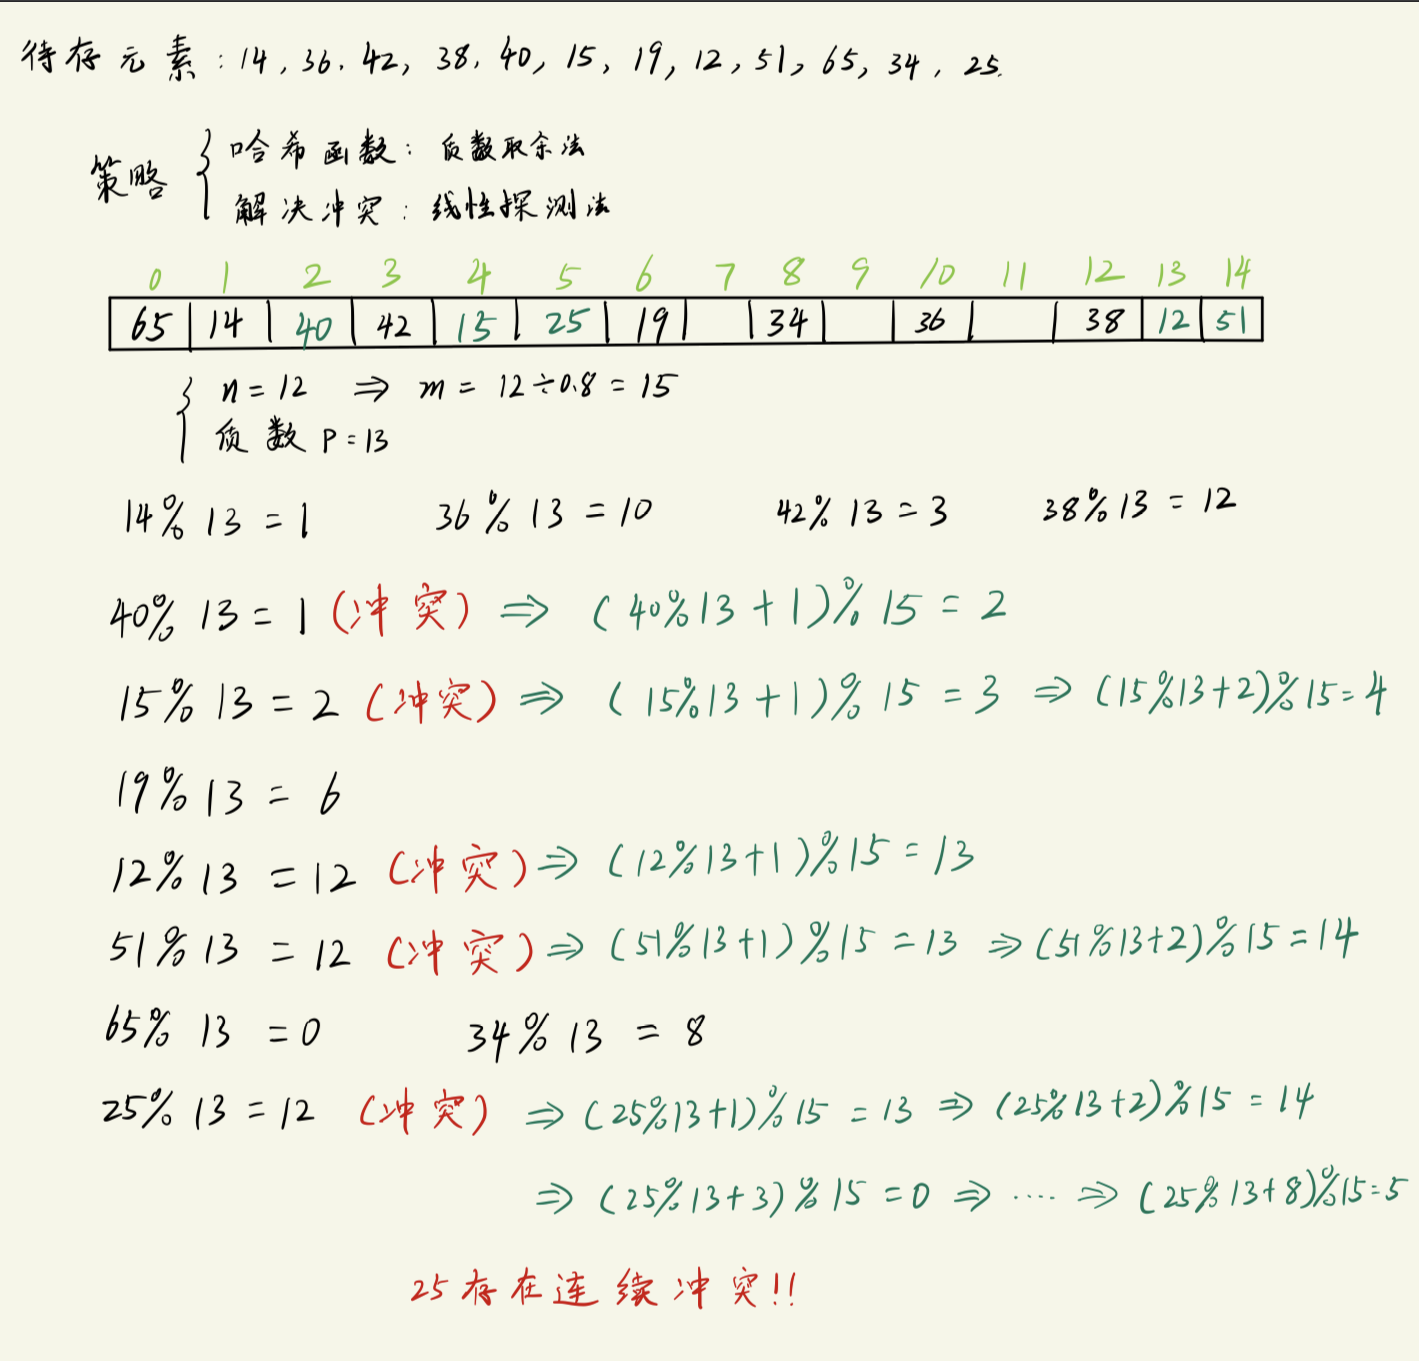 待存元素：14, 36, 42, 38, 40, 15, 19, 12, 51, 65, 34, 25.
策略 { 哈希函数：质数取余法
解决冲突：线性探测法
0 1 2 3 4 5 6 7 8 9 10 11 12 13 14
65 14 40 42 15 25 19 34 36 38 12 51
{ n = 12 ⇒ m = 12÷0.8 = 15
质数 P = 13
14% 13 = 1 36% 13 = 10 42% 13 = 3 38% 13 = 12
40% 13 = 1 (冲突) ⇒ (40%13+1)%15 = 2
15% 13 = 2 (冲突) ⇒ (15%13+1)%15 = 3 ⇒ (15%13+2)%15=4
19% 13 = 6
12% 13 = 12 (冲突) ⇒ (12%13+1)%15 = 13
51% 13 = 12 (冲突) ⇒ (51%13+1)%15 = 13 ⇒ (51%13+2)%15=14
65% 13 = 0 34% 13 = 8
25% 13 = 12 (冲突) ⇒ (25%13+1)%15 = 13 ⇒ (25%13+2)%15 = 14
⇒ (25%13+3)%15 = 0 ⇒ ···· ⇒ (25%13+8)%15=5
25存在连续冲突!!